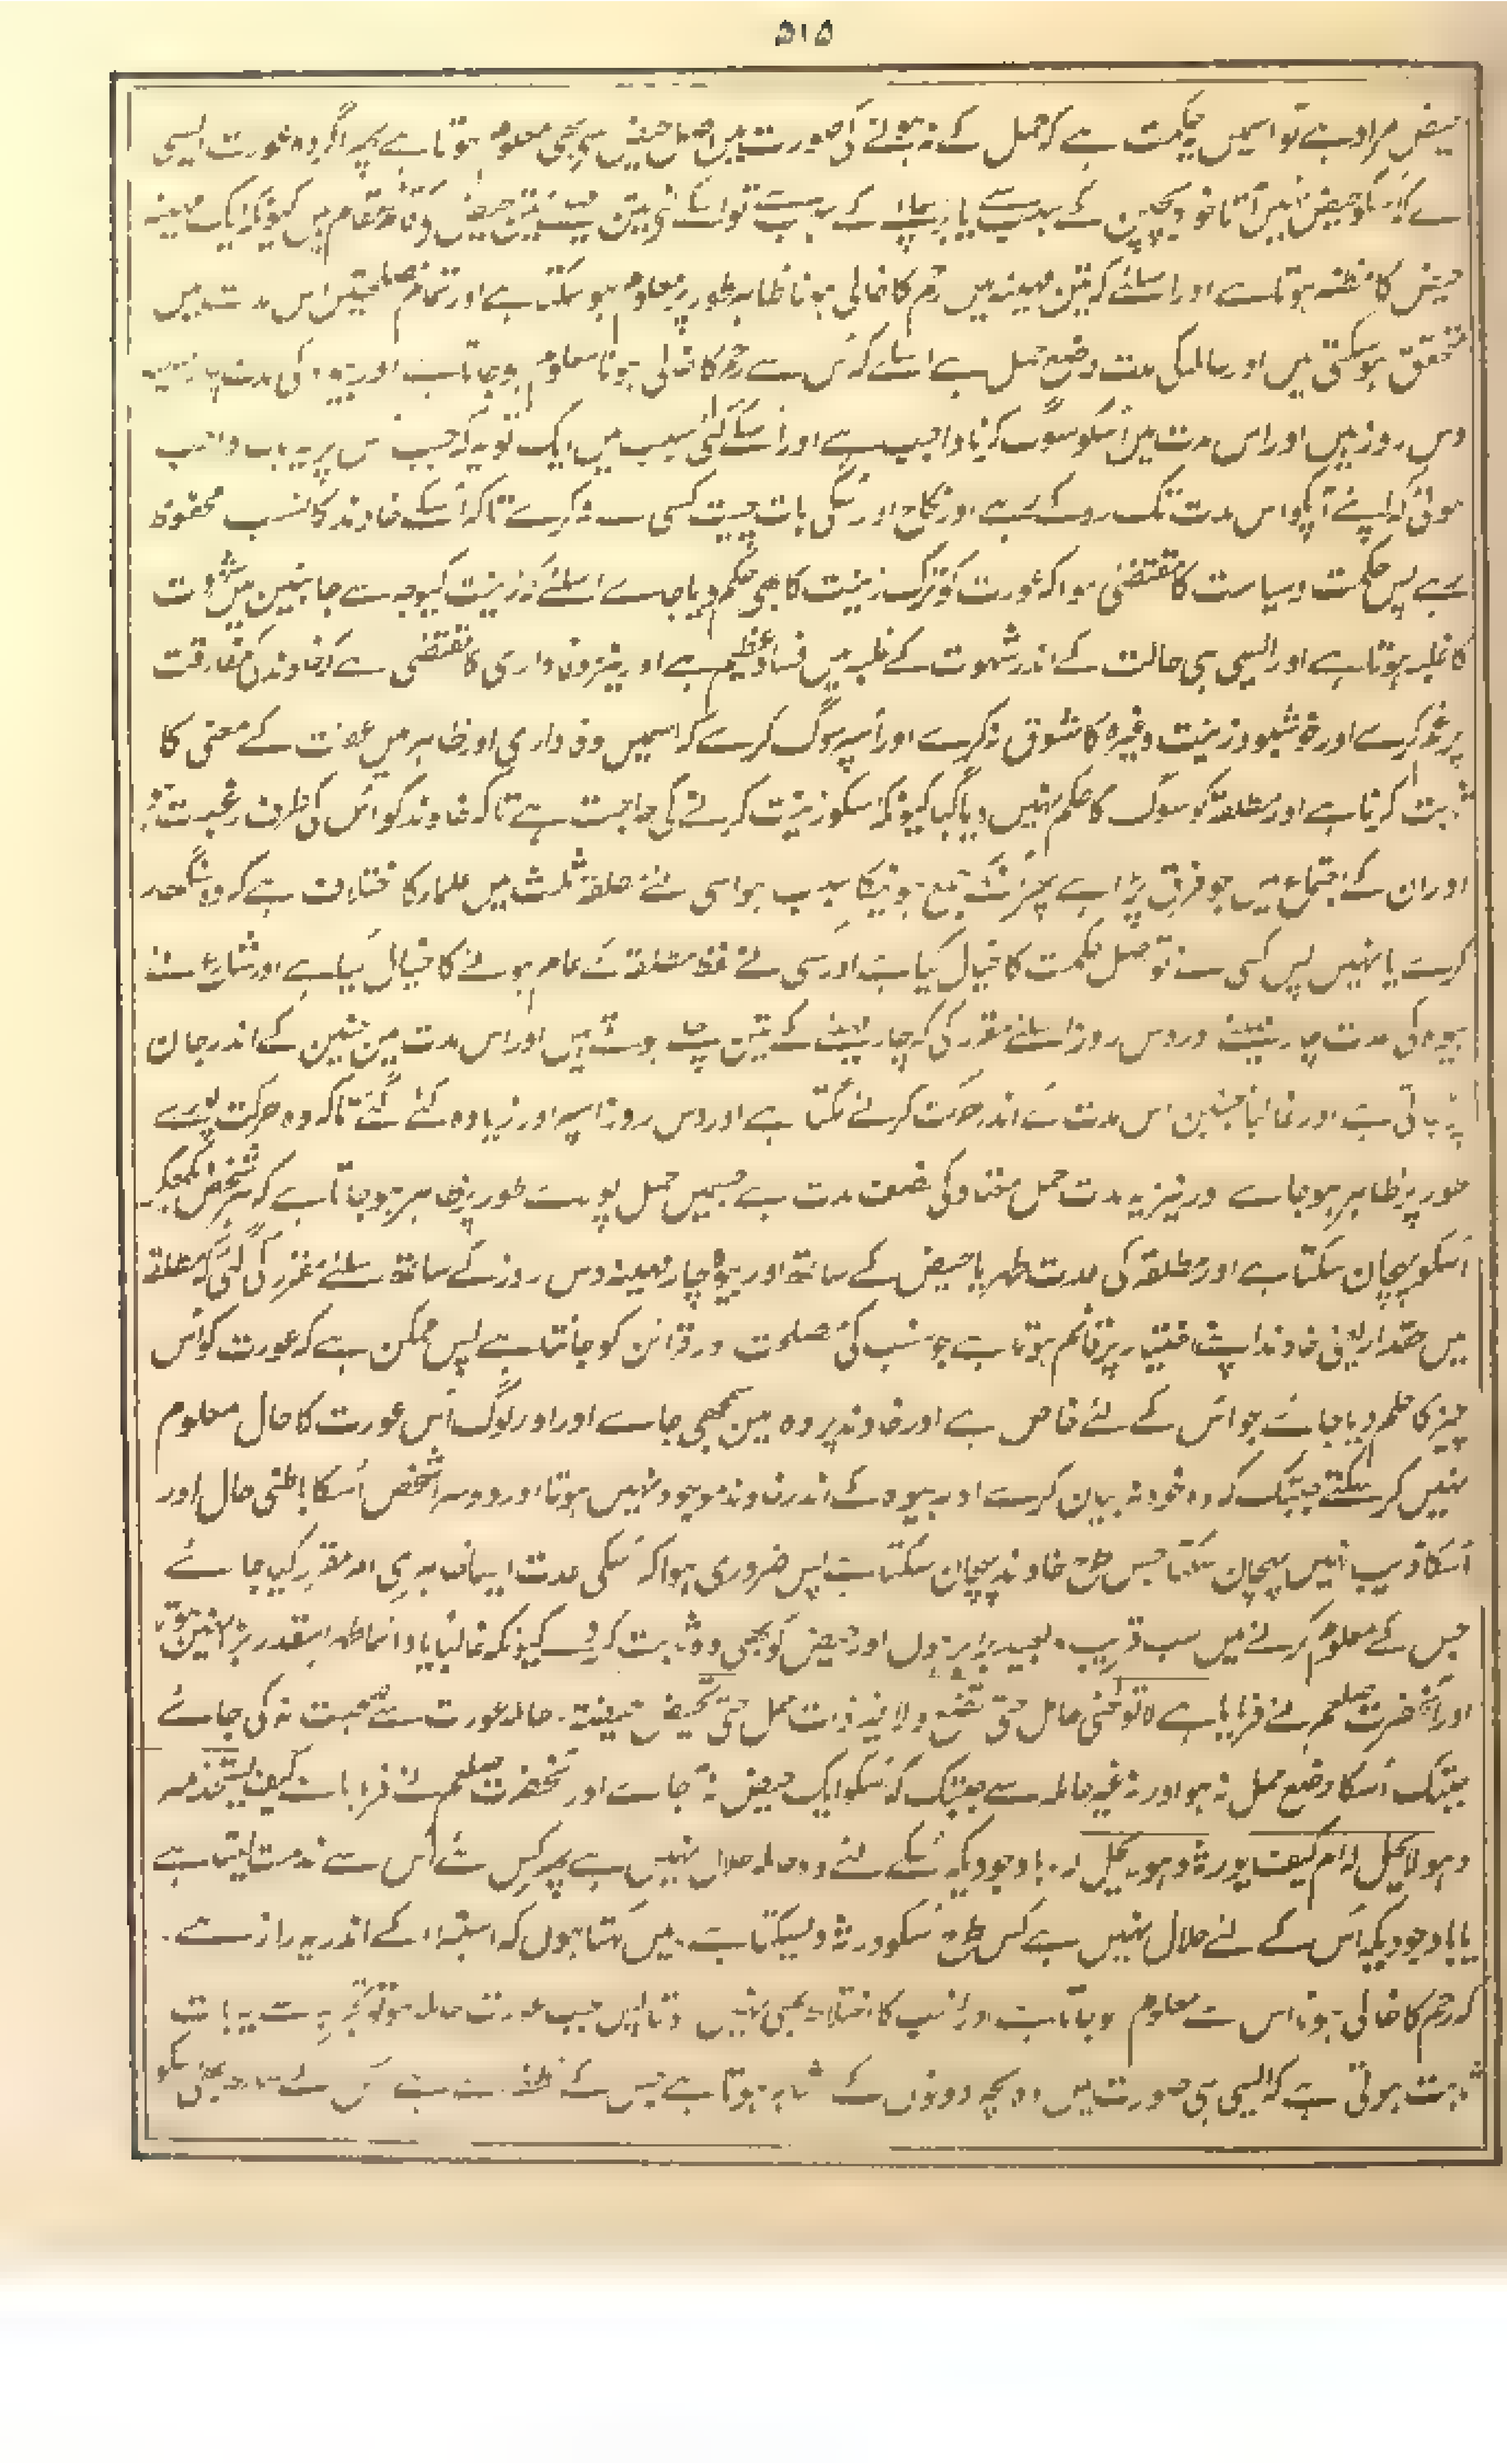 ۵۱۵
حیض مراد ہے تو اسمیں یہ حکمت ہے کہ حمل کے نہ ہونے کی صورت میں اصل حیض ہی سے معلوم ہوتا ہے پھر اگر وہ عورت ایسی
ہے کہ اسکو حیض نہیں آتا خواہ بچپن کے سبب سے یا بڑھاپے کے سبب تو اسکے لئے تین مہینے تین حیض کے قائم مقام ہیں کیونکہ ایک مہینہ
حیض کا مظنہ ہوتا ہے اور اسلئے کہ تین مہینہ میں رحم کا خالی ہونا ظاہر طور پر معلوم ہو سکتا ہے اور تمام مصلحتیں اس مدت میں
متحقق ہو سکتی ہیں اور حاملہ کی مدت وضع حمل ہے اسلئے کہ اس سے رحم کا خالی ہونا معلوم ہو جاتا ہے اور بیوہ کی مدت چار مہینے
دس روز ہیں اور اس مدت میں اسکو سوگ کرنا واجب ہے اور اسکے کئی سبب ہیں ایک تو یہ کہ جب اس پر یہ بات واجب
ہوئی کہ اپنے آپکو اس مدت تک روکے رہے اور نکاح اور منگنی بات چیت کسی سے نہ کرے تاکہ اسکے خاوند کا نسب محفوظ
رہے پس حکمت و سیاست کا مقتضی ہوا کہ عورت کو ترک زینت کا بھی حکم دیا جاے اسلئے کہ زینت کیوجہ سے جانبین میں شہوت
کا غلبہ ہوتا ہے اور ایسی ہی حالت کے اندر شہوت کے غلبہ میں فساد عظیم ہے اور نیز وفاداری کا مقتضی ہے کہ خاوند کی مفارقت
پر غم کرے اور خوشبو و زینت وغیرہ کا شوق نہ کرے اور اسپر سوگ کرے کہ اسمیں وفاداری اور ظاہر میں عفت کے معنی کا
ثابت کرنا ہے اور مطلقہ کو سوگ کا حکم نہیں دیا گیا کیونکہ اسکو زینت کرنے کی حاجت ہے تاکہ خاوند کو اس کی طرف رغبت ہو
اور ان کے اجتماع میں جو فرق پڑا ہے پھر جمع ہونیکا سبب ہو اسی لئے مطلقہ ثلث میں علماء کا اختلاف ہے کہ وہ سنگھار
کرے یا نہیں پس کسی نے تو اصل حکمت کا خیال کیا ہے اور کسی نے لفظ مطلقہ کے عام ہونے کا خیال کیا ہے اور شارع نے
بیوہ کی مدت چار مہینے اور دس روز اسلئے مقرر کی کہ چار مہینے کے تین چلے ہوتے ہیں اور اس مدت میں جنین کے اندر جان
پڑ جاتی ہے اور غالباً جنین اس مدت کے اندر حرکت کرنے لگتا ہے اور دس روز اسپر اور زیادہ کئے گئے تاکہ وہ حرکت پورے
طور پر ظاہر ہو جاے اور نیز یہ مدت حمل معتاد کی نصف مدت ہے جسمیں حمل پورے طور پر ظاہر ہو جاتا ہے کہ ہر شخص دیکھکر
اسکو پہچان سکتا ہے اور مطلقہ کی عدت طہر یا حیض کے ساتھ اور بیوہ چار مہینہ دس روز کے ساتھ اسلئے مقرر کی گئی کہ مطلقہ
میں حقدار یعنی خاوند اپنے اختیار پر قائم ہوتا ہے جو نسب کی مصلحت اور قرائن کو جانتا ہے پس ممکن ہے کہ عورت کو اس
چیز کا حکم دیا جاے جو اس کے لئے خاص ہے اور خاوند پر وہ امین سمجھی جاے اور اور لوگ اس عورت کا حال معلوم
نہیں کر سکتے جبتک کہ وہ خود نہ بیان کرے اور بیوہ کے اندر خاوند موجود نہیں ہوتا اور دوسرا شخص اسکا باطنی حال اور
اسکا فریب نہیں پہچان سکتا جس طرح خاوند پہچان سکتا ہے پس ضروری ہوا کہ اسکی عدت ایسا ظاہری امر مقرر کیا جائے
جس کے معلوم کرنے میں سب قریب و بعید برابر ہوں اور حیض کو بھی وہ ثابت کر دے کیونکہ غالباً یا دائما طہر اسقدر بڑا نہیں ہوتا
اور آنحضرت صلعم نے فرمایا ہے لا توطئ حامل حتی تضع ولا غیر ذات حمل حتی تحیض حیضۃ۔ حاملہ عورت سے صحبت نہ کی جائے
جبتک اسکا وضع حمل نہ ہو اور نہ غیر حاملہ سے جبتک کہ اسکو ایک حیض نہ آ جاے اور آنحضرت صلعم نے فرمایا ہے کیف یستخدمہ
وہو لا یحل لہ ام کیف یورثہ وہو لا یحل لہ۔ باوجودیکہ اسکے لئے وہ حلال نہیں ہے پھر کس لئے اس سے خدمت لیتا ہے
یا باوجودیکہ اس کے لئے حلال نہیں ہے کس طرح اسکو ورثہ دیسکتا ہے۔ میں کہتا ہوں کہ استبراء کے اندر یہ راز ہے۔
کہ رحم کا خالی ہونا اس سے معلوم ہو جاتا ہے اور انسب کا اختلاط بھی نہیں ہوتا پس جب عورت حاملہ ہو تو تجربہ سے یہ بات
ثابت ہوتی ہے کہ ایسی ہی صورت میں وہ بچہ دونوں کے مشابہ ہوتا ہے جس کے نطفہ سے ہے اس سے